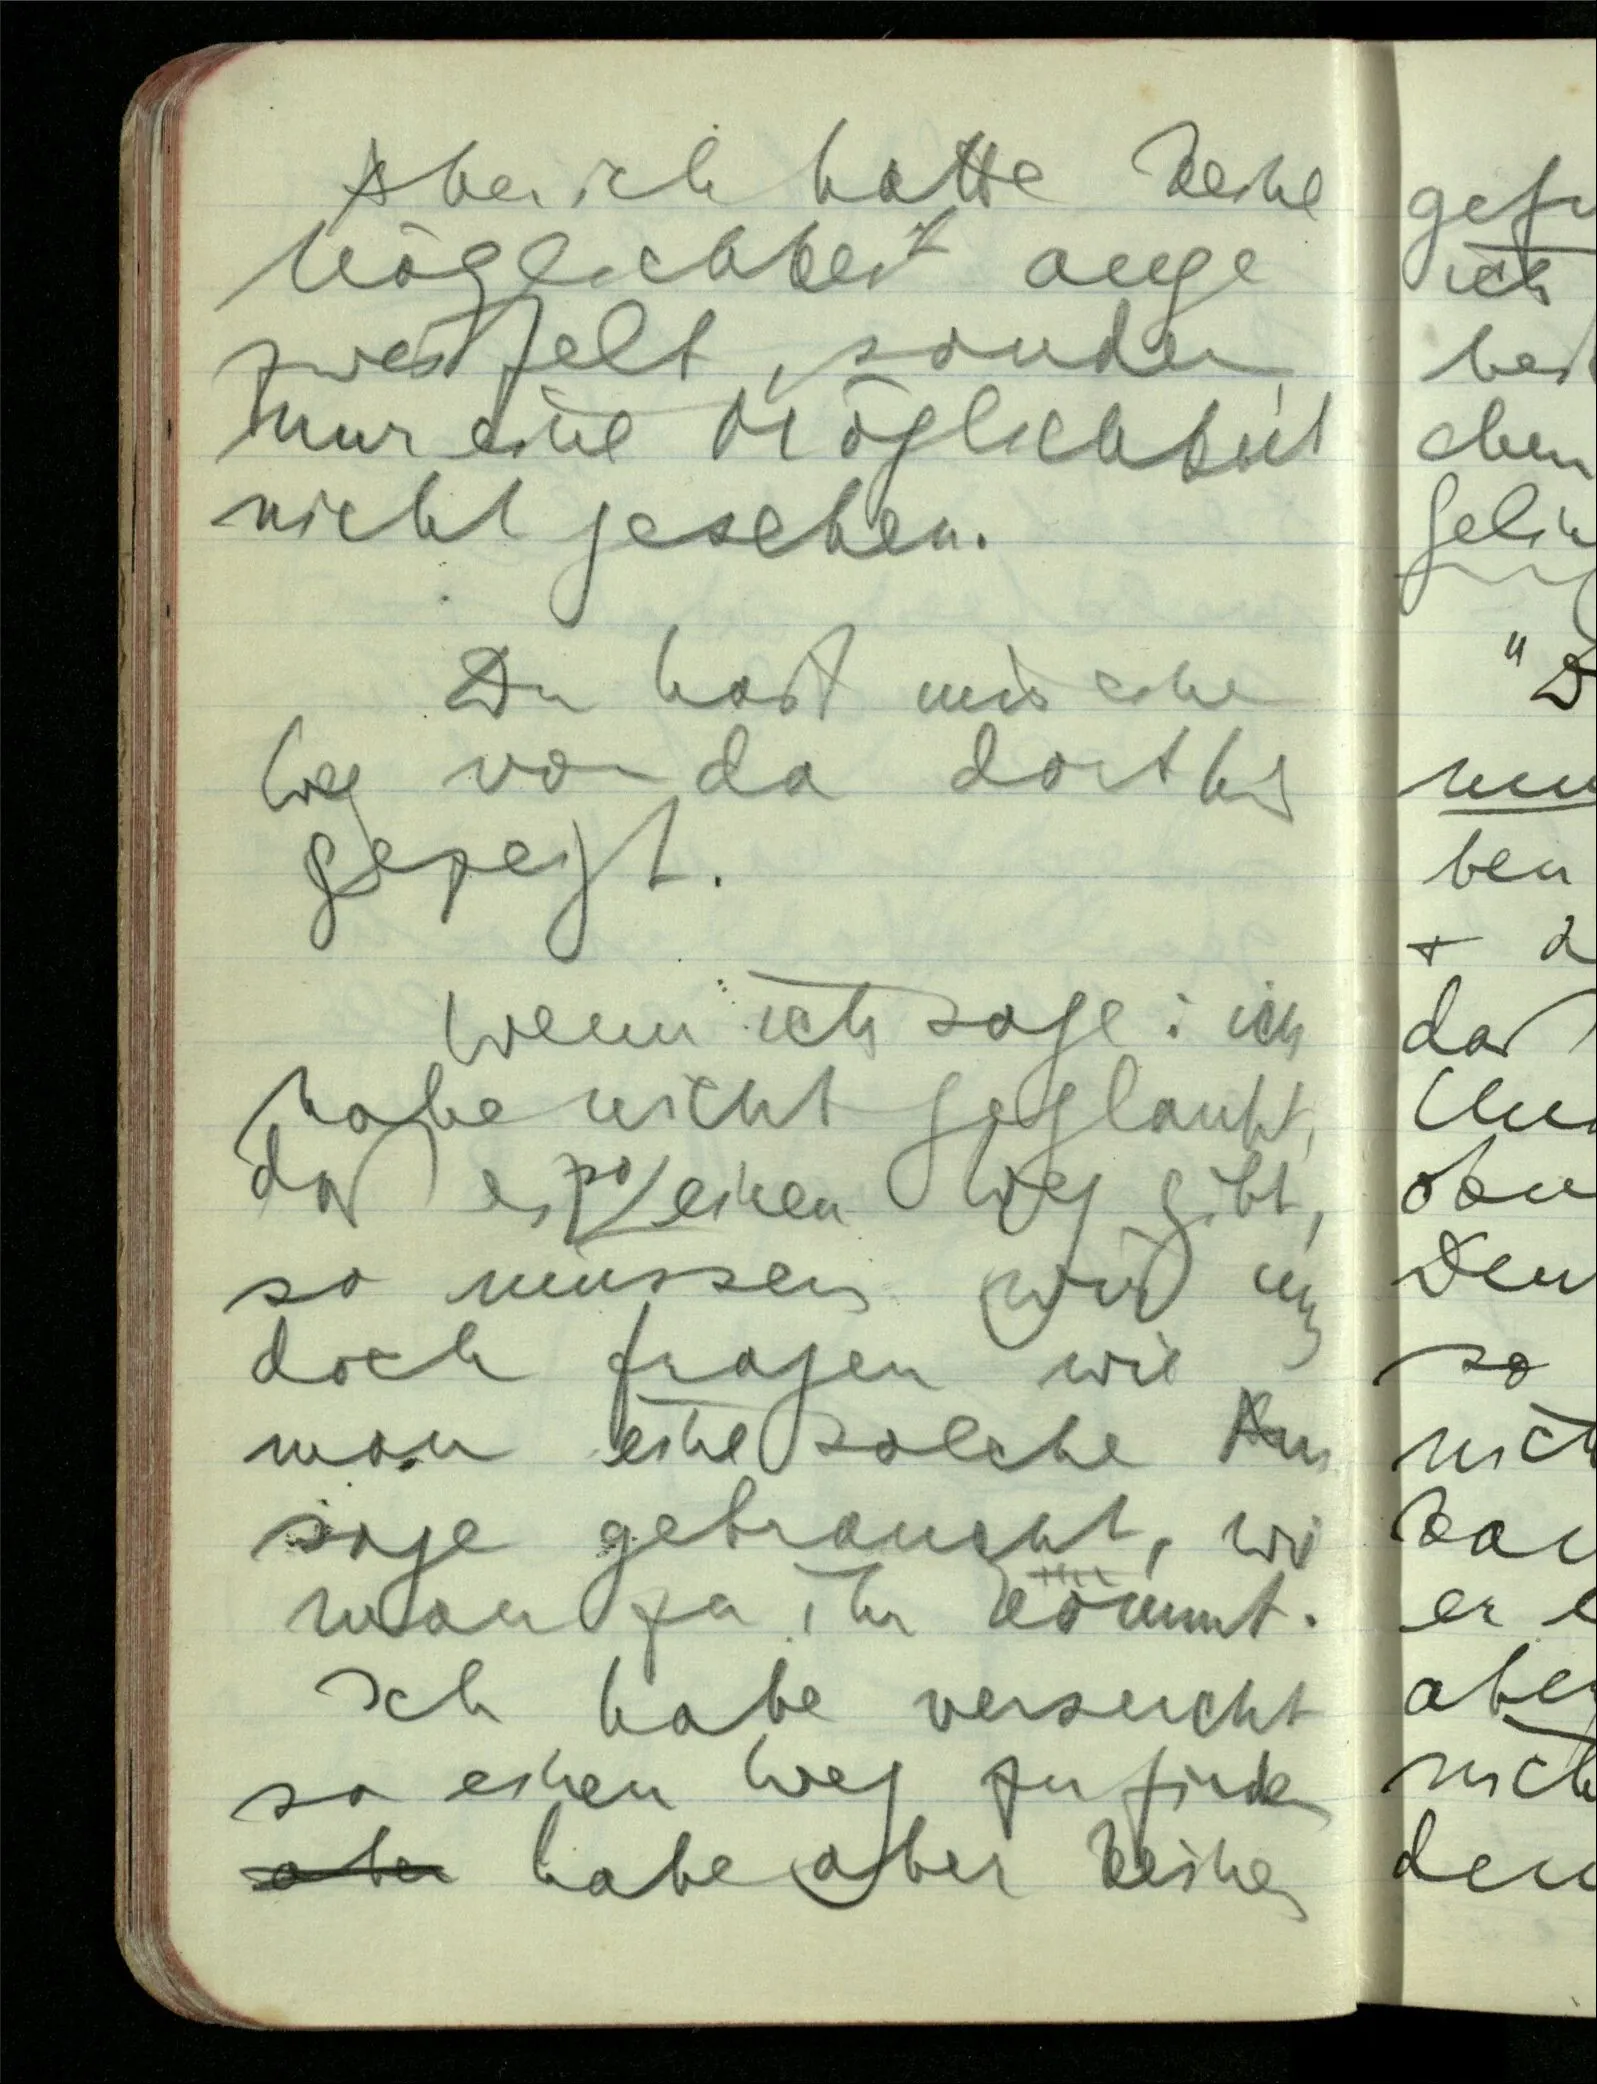 Aber ich hatte keine
Möglichkeit ange
zweifelt, sondern
nur eine Möglichkeit
nicht gesehen.
Du hast mir einen
Weg von da dorthin
gezeigt.
Wenn ich sage: ich
habe nicht geglaubt,
daß es so einen Weg gibt,
so müssen wir uns
doch fragen wie
man eine solche Aus
sage gebraucht, wie
man zu ihr kommt.
Ich habe versucht
so einen Weg zu finden
aber habe aber keinen
ich
ben
+
daß
so
er
aber